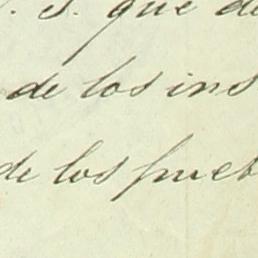 S. que de
de los ins
de los pueb